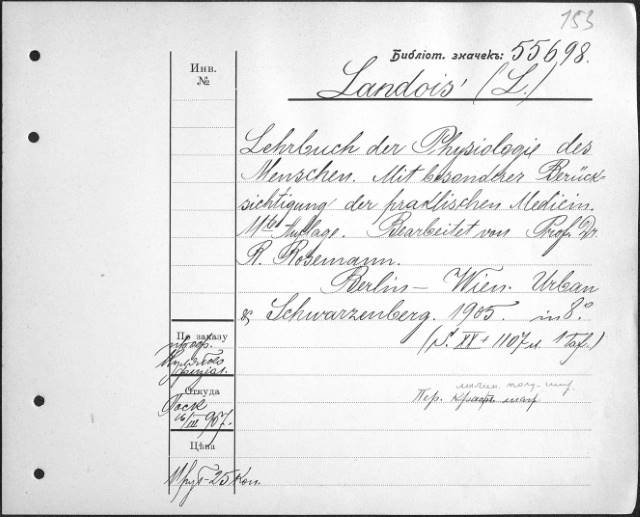 153
Библіот. значекъ: 55698.
Инв.
№
Landois' (L.)
Lehrbuch der Physiologie des
Menschen. Mit besonderer Berück-
sichtigung der praktischen Medicin.
11te Auflage. Bearbeitet von Prof. Dr.
R. Rosemann.
Berlin – Wien. Urban
& Schwarzenberg. 1905. in 8.°
(S. XV + 1107 u. 1 Taf.)
По заказу
проф.
Откуда
16/III 907.
Пер.
Цѣна
11 руб - 25 коп.